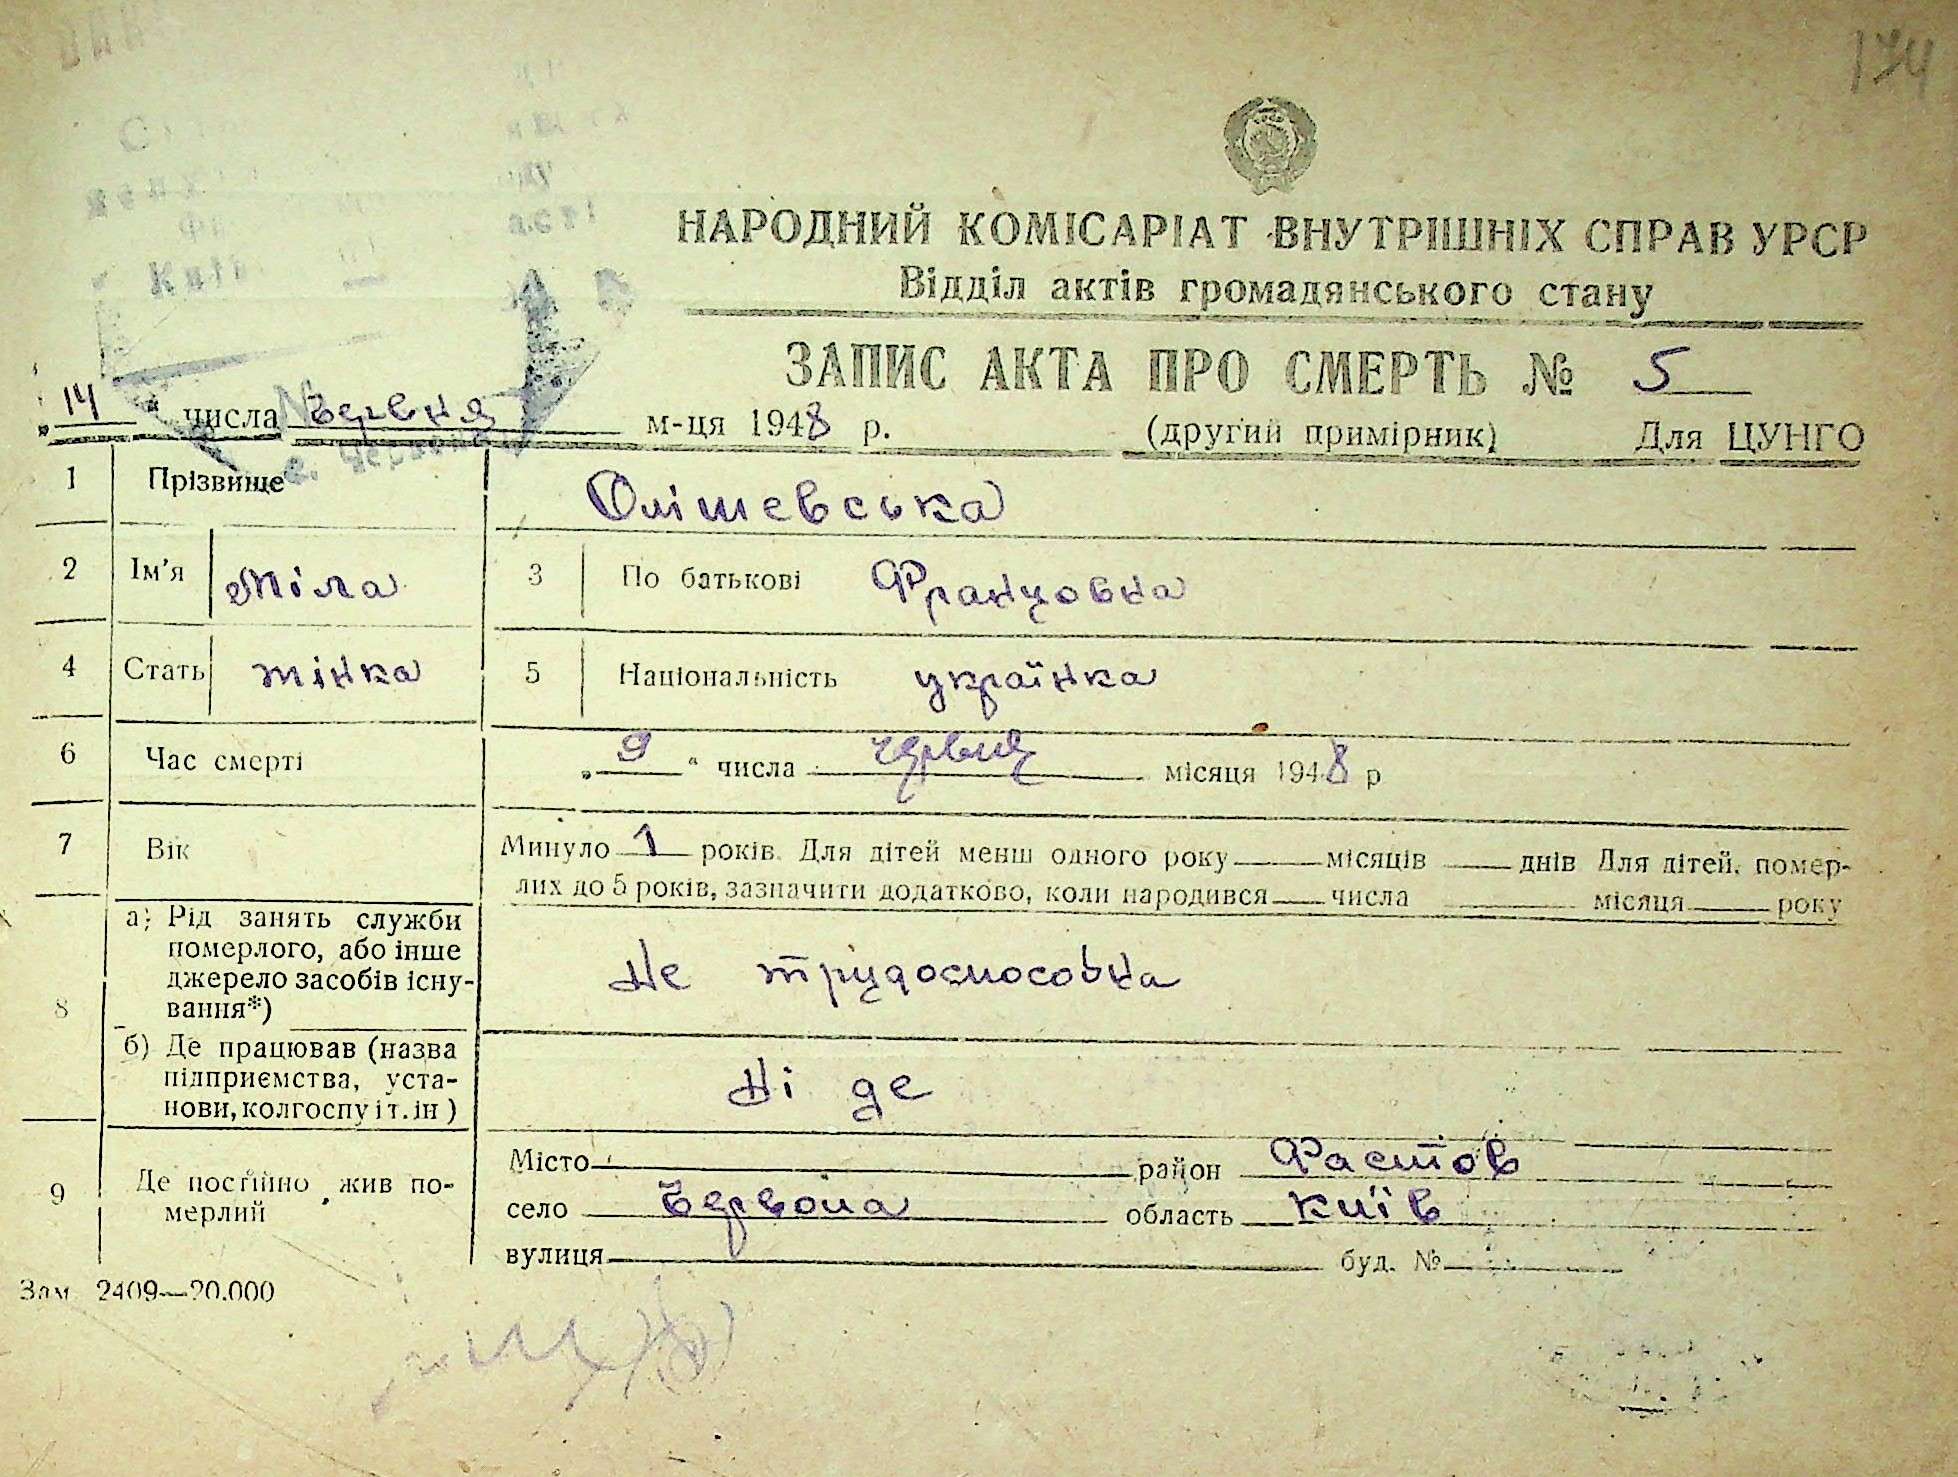 174
НАРОДНИЙ КОМІСАРІАТ ВНУТРІШНІХ СПРАВ УРСР
Відділ актів громадянського стану
ЗАПИС АКТА ПРО СМЕРТЬ № 5
„14“ числа червня м-ця 1948 р. (другий примірник) Для ЦУНГО
1 Прізвище Олішевська
2 Ім'я Міла 3 По батькові Францовна
4 Стать жінка 5 Національність українка
6 Час смерті „9“ числа червня місяця 1948 р
7 Вік Минуло 1 років. Для дітей менш одного року місяців днів Для дітей, помер-
лих до 5 років, зазначити додатково, коли народився числа місяця року
8 а) Рід занять служби
померлого, або інше
джерело засобів існу-
вання*) Не трудоспособна
б) Де працював (назва
підприємства, уста-
нови, колгоспу і т. ін) Ні де
9 Де постійно жив по-
мерлий
Місто район Фастов
село Червона область Київ
вулиця буд. №
Зам 2409—20.000